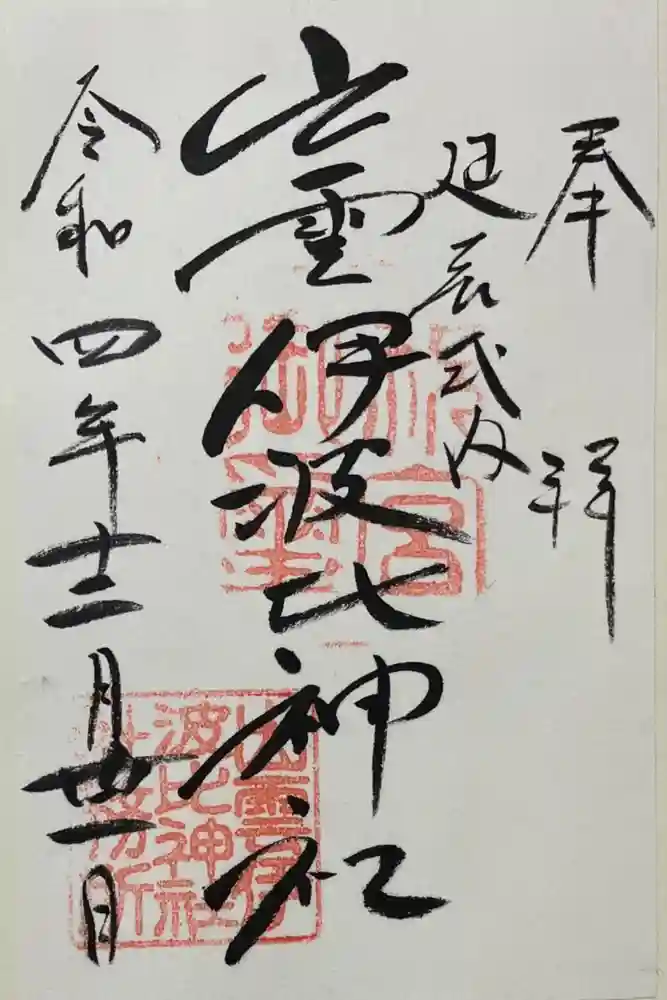 奉拝
延喜式内
出雲伊波比神社
令和四年十二月廿一日
出雲伊
波比神社
社務所